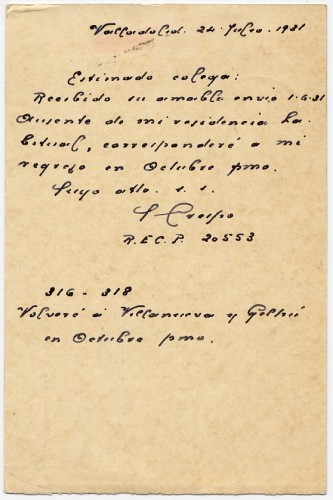 Valladolid. 24 Julio. 1931
Estimado colega:
Recibido su amable envio 1.6.31
Ausente de mi residencia ha-
bitual, corresponderé a mi
regreso en Octubre pmo.
Suyo atto. s.s.
S Crespo
R.E.C.P. 20553
316 - 318
Volveré á Villanueva y Geltrú
en Octubre pmo.